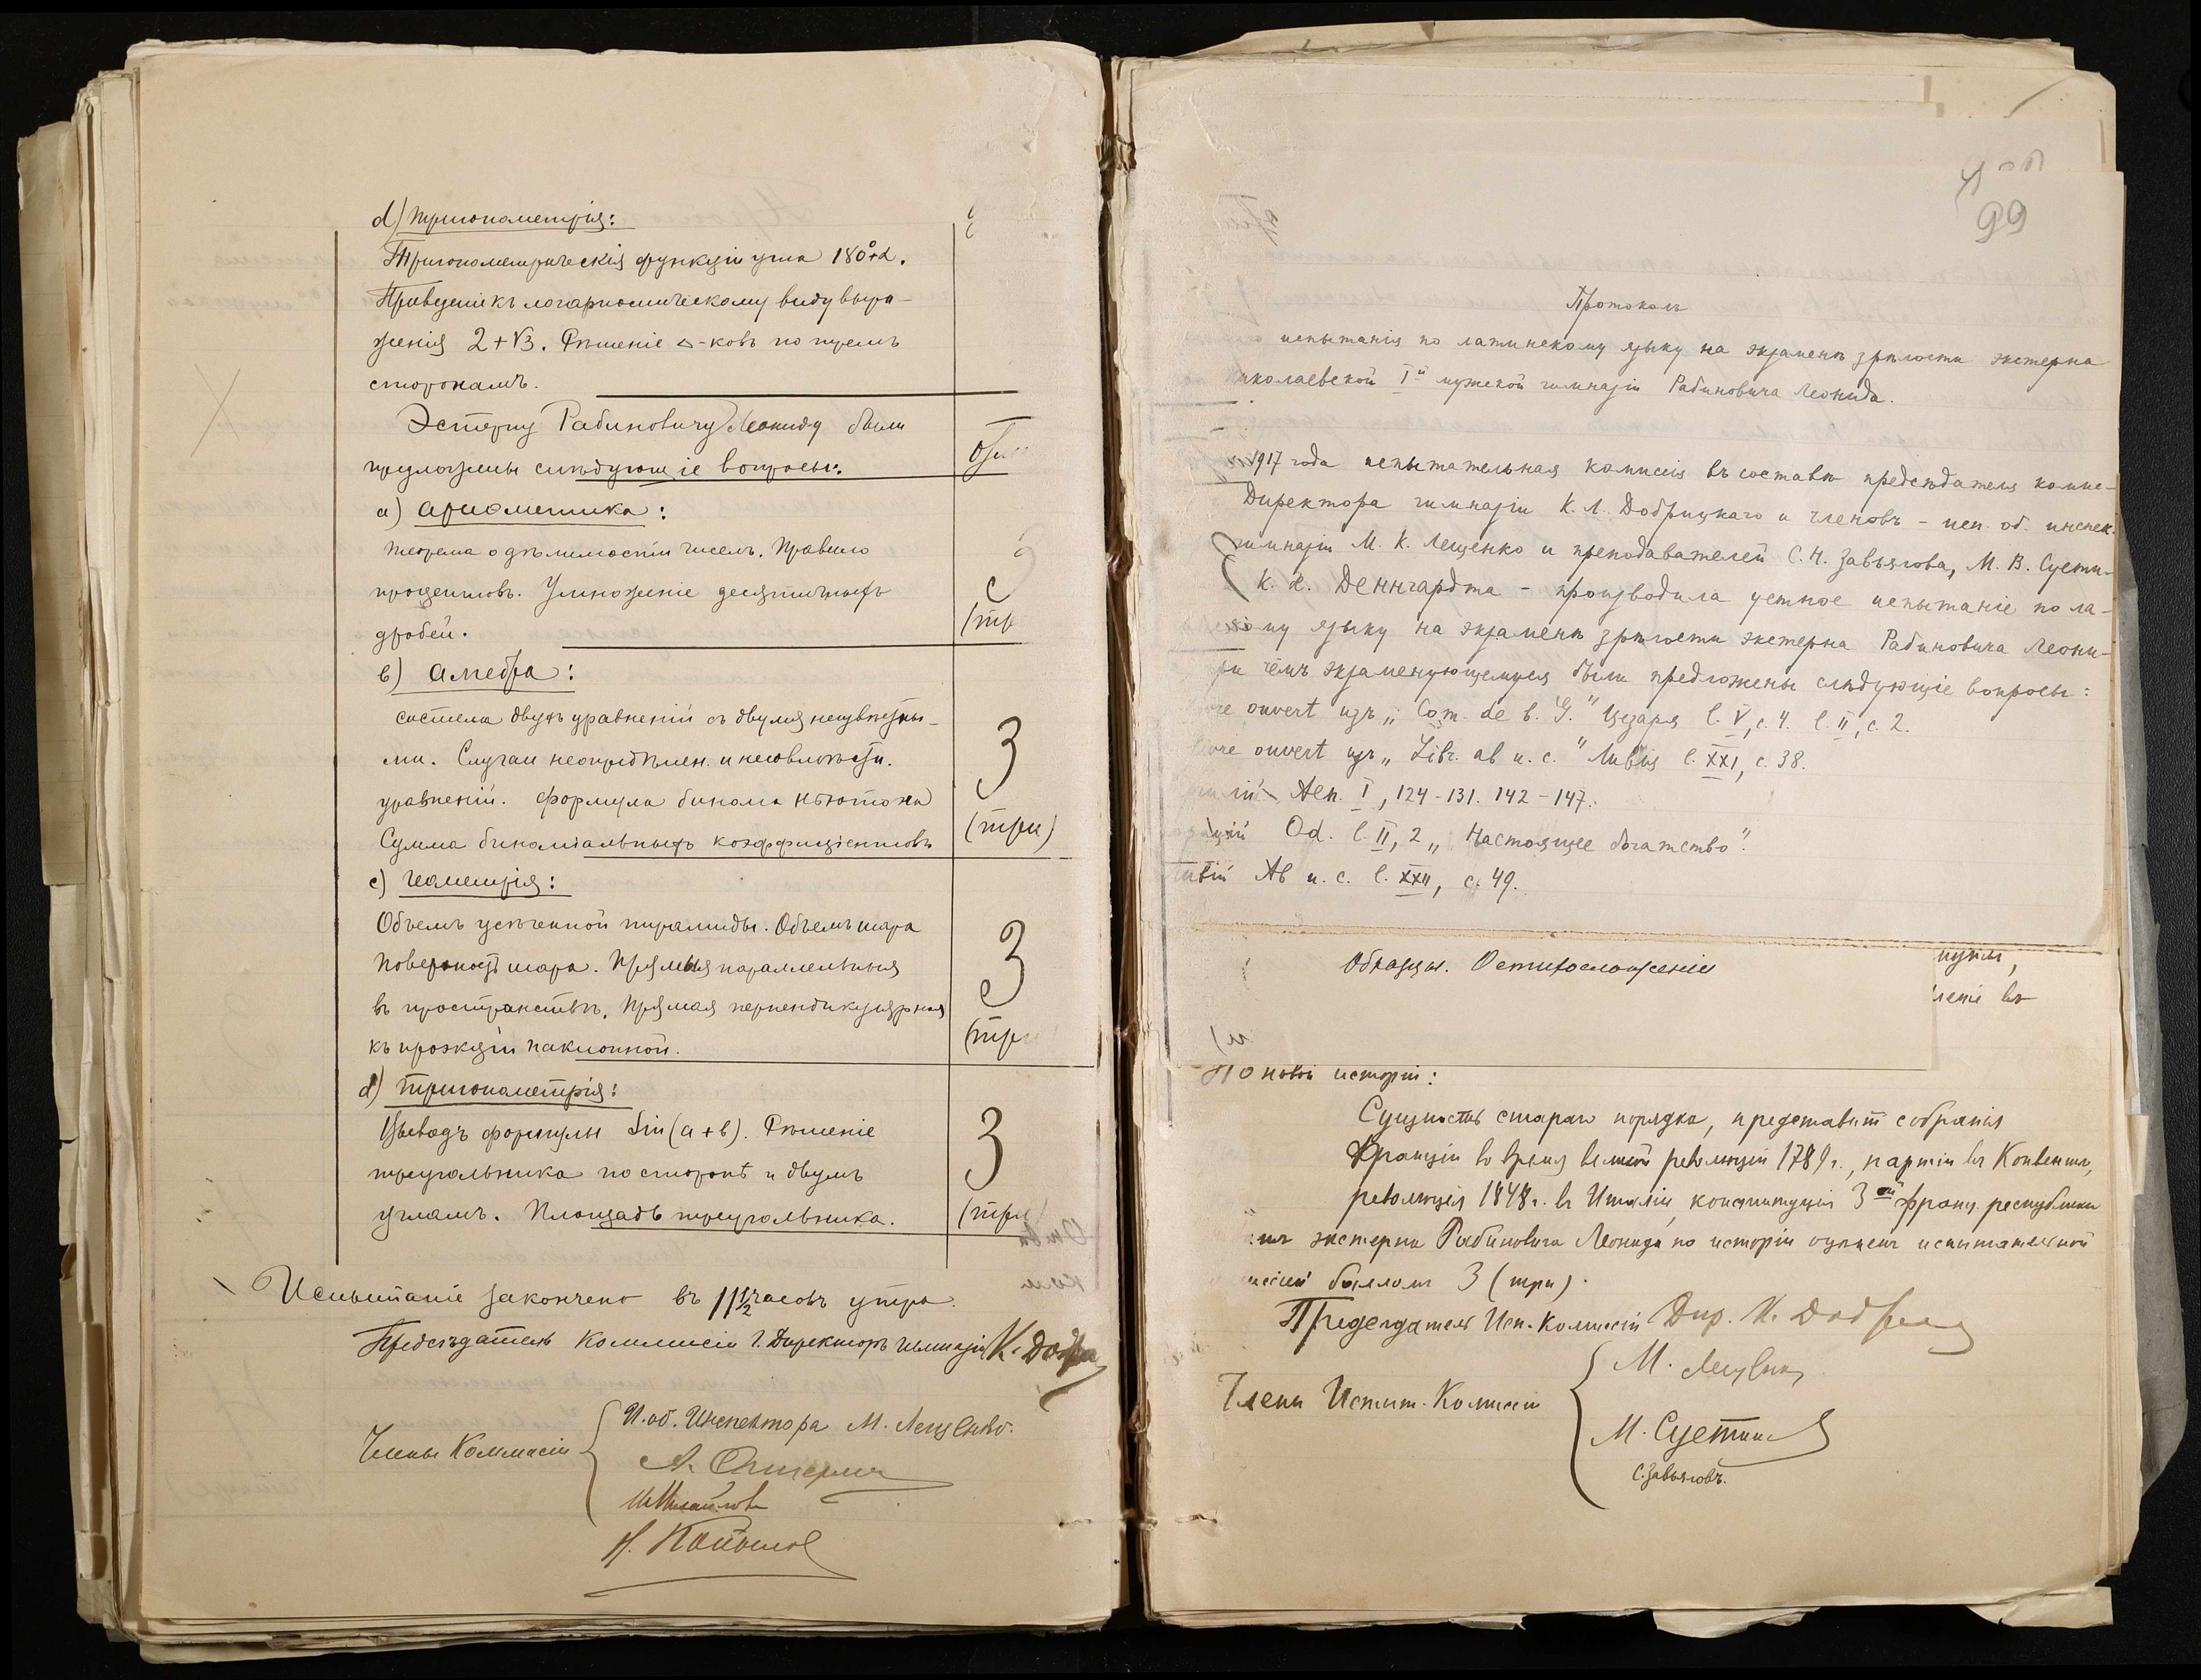 d) тригонометрія:
Тригонометрическія функціи угла 180°+α.
Приведеніе къ логариѳмическому виду выра-
женія 2+√3. Рѣшеніе △-ковъ по тремъ
сторонамъ.
Эстерну Рабиновичу Леониду были
предложены слѣдующіе вопросы:
а) ариѳметика:
теорема о дѣлимости чиселъ. Правило
процентовъ. Умноженіе десятичныхъ
дробей.
(тр
в) алгебра:
система двухъ уравненій съ двумя неизвѣстны-
ми. Случаи неопредѣлен. и несовмѣстн.
уравненій. Формула бинома Ньютона
Сумма биноміальныхъ коэффиціентовъ
3
(три)
с) геометрія:
Объемъ усѣченной пирамиды. Объемъ шара
Поверхность шара. Прямыя параллельныя
въ пространствѣ. Прямая перпендикулярная
къ проэкціи наклонной.
3
(три
d) тригонометрія:
Выводъ формулы Sin(a+b). Рѣшеніе
треугольника по сторонѣ и двумъ
угламъ. Площадь треугольника.
3
(три
Испытаніе закончено въ 11½ часовъ утра.
Предсѣдатель Коммисіи Г. Директоръ гимназіи К. Добр
Члены Коммисіи
И. об. Инспектора М. Лещенко.
99
Протоколъ
испытанія по латинскому языку на экзаменѣ зрѣлости экстерна
иколаевской Iй мужской гимназіи Рабиновича Леонида.
1917 года испытательная комиссія въ составѣ предсѣдателя комис-
Директора гимназіи К. Л. Добрицкаго и членовъ - исп. об. инспек.
гимназіи М. К. Лещенко и преподавателей С. Н. Завьялова, М. В. Суети-
К. К. Деннгардта - производила устное испытаніе по ла-
ому языку на экзаменѣ зрѣлости экстерна Рабиновича Леони-
ри чёмъ экзаменующемуся были предложены слѣдующіе вопросы:
vre ouvert изъ „Com. de b. G." Цезаря l. V, c. 4. l. II, c. 2.
livre ouvert изъ „Libr. ab u. c." Ливія l. XXI, c. 38.
илій Aen. I, 124-131. 142-147.
рацій Od. l. II, 2 „Настоящее богатство".
Ливій Ab u. c. l. XXII, c. 49.
леніе въ
По новой исторіи:
Сущность стараго порядка, представит собранія
Франціи во время великой революціи 1789 г., партіи въ Конвентѣ,
революція 1848 г. въ Италіи, конституція 3ей франц. республики
экстерна Рабиновича Леонида по исторіи оцѣненъ испытательной
миссіей балломъ 3 (три).
Предсѣдатель Исп. Комиссіи Дир. К. Добр
Члены Испыт. Комиссіи
М. Лещенко
М. Суетин
С. Завьяловъ.